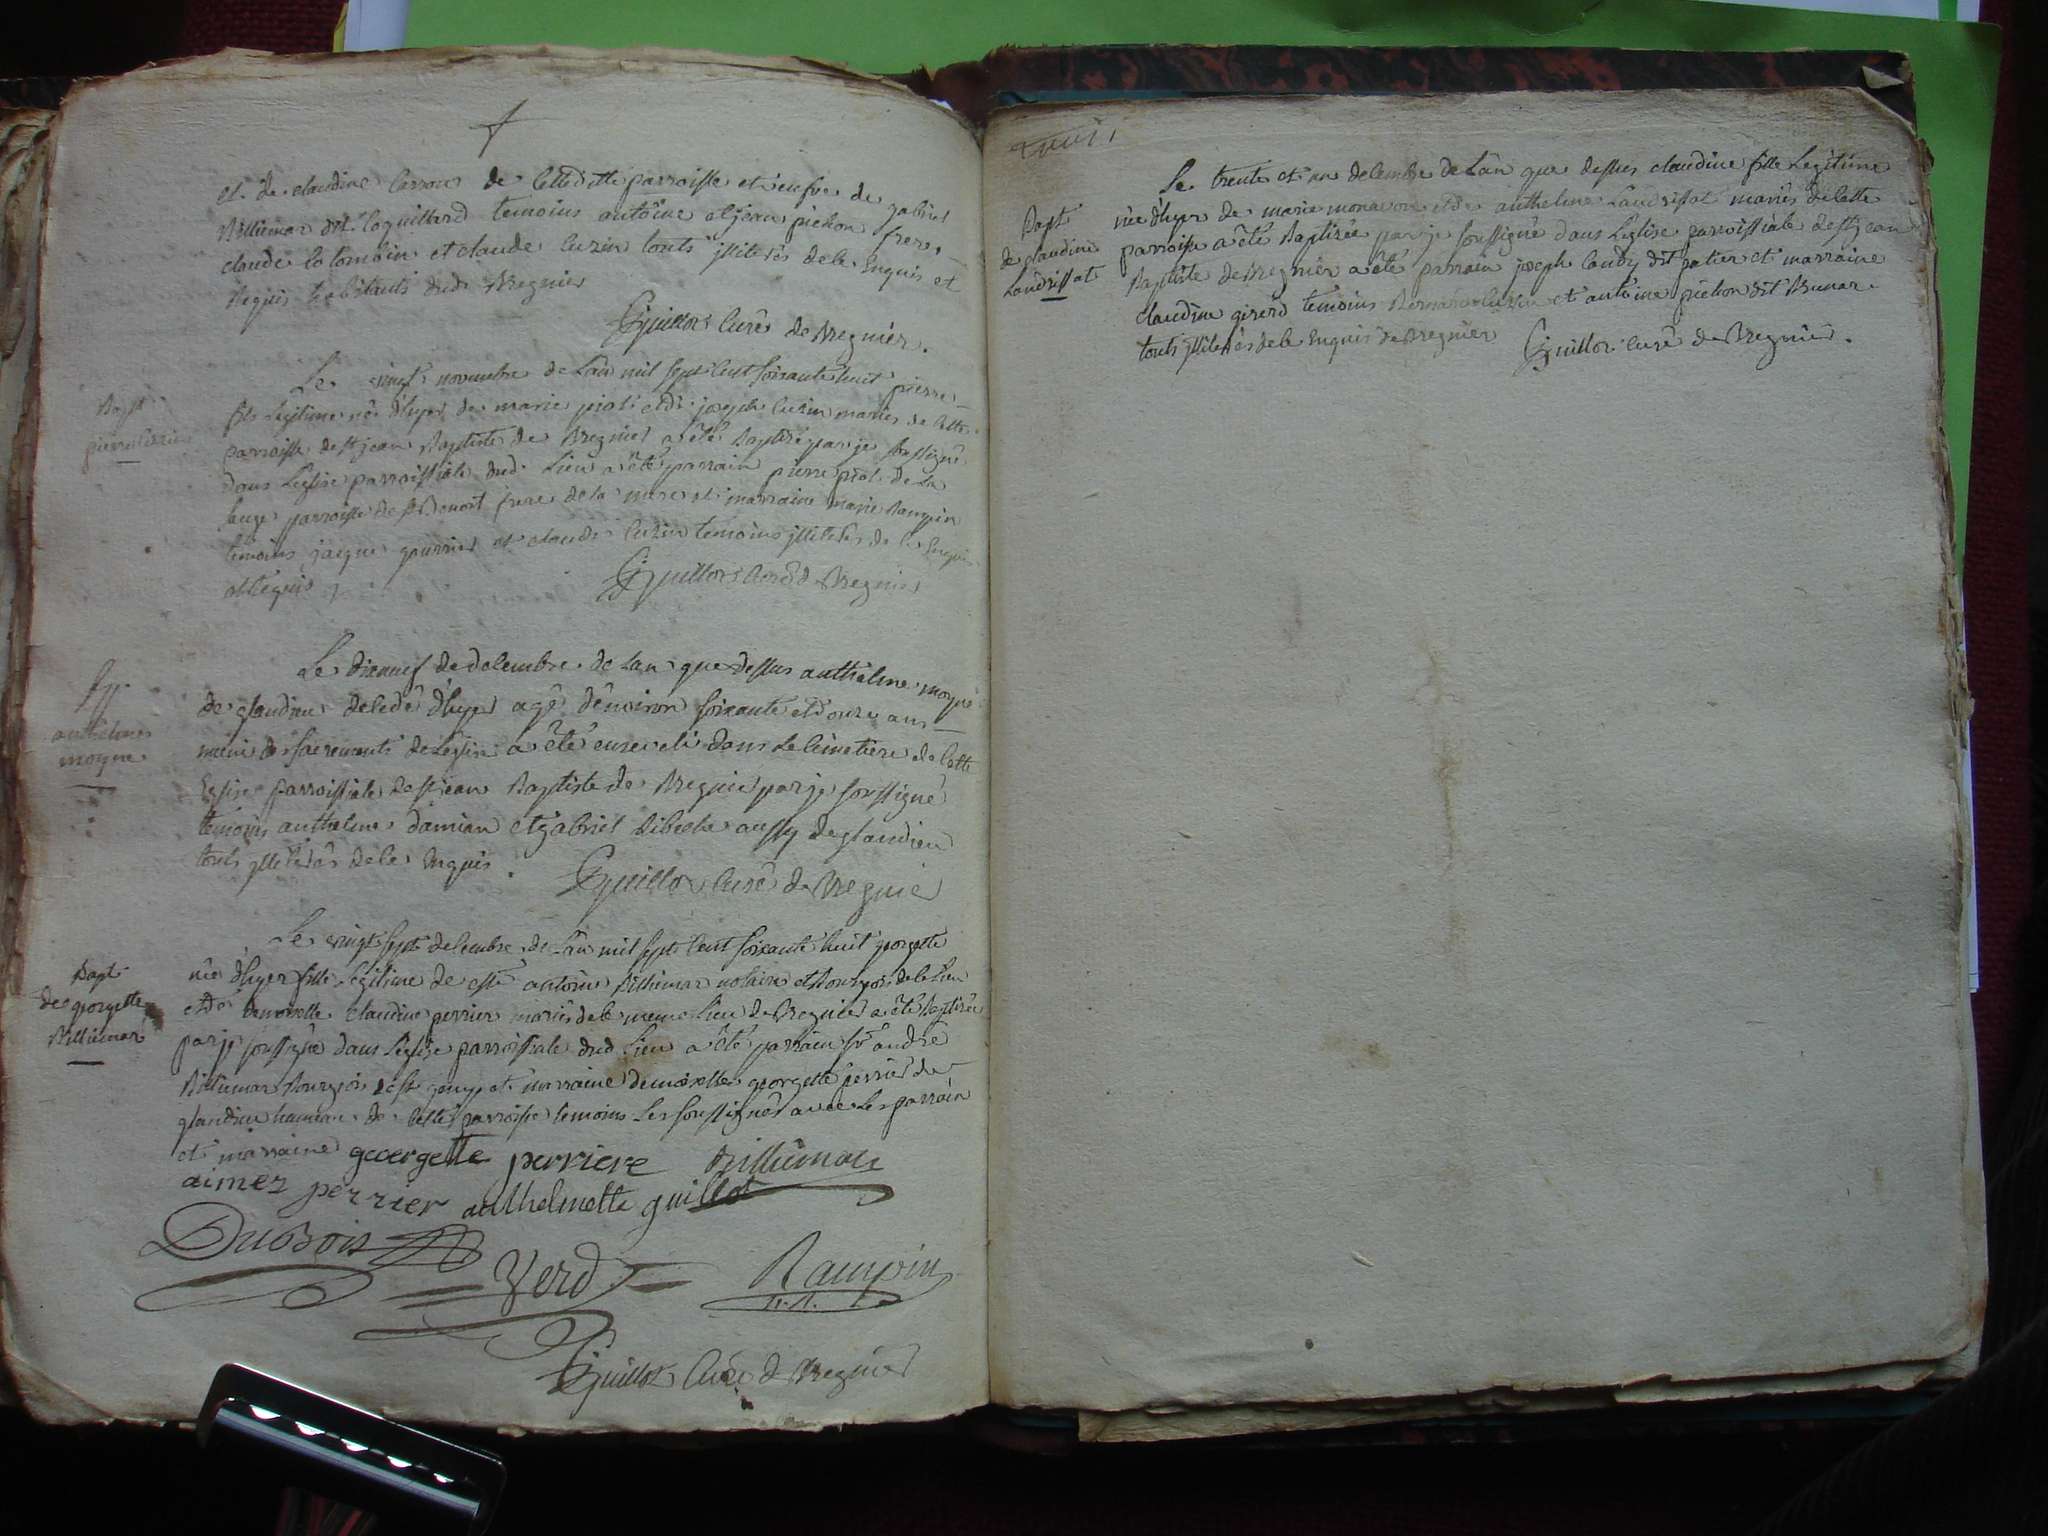 et de claudine Carron de cette ditte parroisse et veufve de gabriel
Billiemar dit Coquillard temoins antoine et jean pichon freres
claude colombin et claude cuzin touts illiterés de ce Enquis et
Requis habitants dud Bregnier
Guillot Curé de Bregnier.
Bapt
pierre Cuzin
Le vingt novembre de L'an mil sept cent soixante huit pierre
fils Legitime né d'hyer de marie piot et de joseph cuzin mariés de cette
parroisse de st jean Baptiste de Bregnier a été Baptisé par je soussigné
dans L'eglise parroissiale dud Lieu a été parrain pierre piot de La
parroisse de st Benoit frere de la mere et marraine marie Rampin
temoins jacque et claude cuzin temoins illiterés de ce Enquis
et Requis
Guillot Curé de Bregnier
anthelme
moyne
Le dixneuf de decembre de L'an que dessus anthelme moyne
de glandieu decedé d'hyer agé d'environ soixante et douze ans
muni des sacrements de L'eglise a été enseveli dans Le cimetiere de cette
Eglise parroissiale de st jean Baptiste de Bregnier par je soussigné
temoins anthelme damian et gabriel Ribode aussy de glandieu
touts illiterés de ce Enquis.
Guillot Curé de Bregnie
Bapt
de georgette
Billiemar
Le vingt sept decembre de L'an mil sept cent soixante huit georgette
née d'hyer fille Legitime de antoine Billiemar notaire et Bourgeois de ce Lieu
et de demoiselle claudine perrier mariés de ce meme Lieu de Bregnier a été Baptisée
par je soussigné dans L'eglise parroissiale dud Lieu a été parrain sr andré
Billiemar Bourgeois de et marraine demoiselle georgette perrier de
glandieu hameau de cette parroisse temoins Les soussignés avec Les parrain
et marraine georgette perriere Billiemaz
aimez perrier anthelmette guillot
DuBois
Verd
Rampin
Guillot Curé d Bregnier
Bapt
de claudine
Landrissat
Le trente et un decembre de L'an que dessus claudine fille Legitime
née d'hyer de marie et de anthelme Landrissat mariés de cette
parroisse a été Baptisée par je soussigné dans L'eglise parroissiale de st jean
Baptiste de Bregnier a été parrain joseph dit patier et marraine
claudine girerd temoins Bernard cuzin et antoine pichon dit Bunar
touts illiterés de ce Enquis de Bregnier Guillot curé de Bregnier.